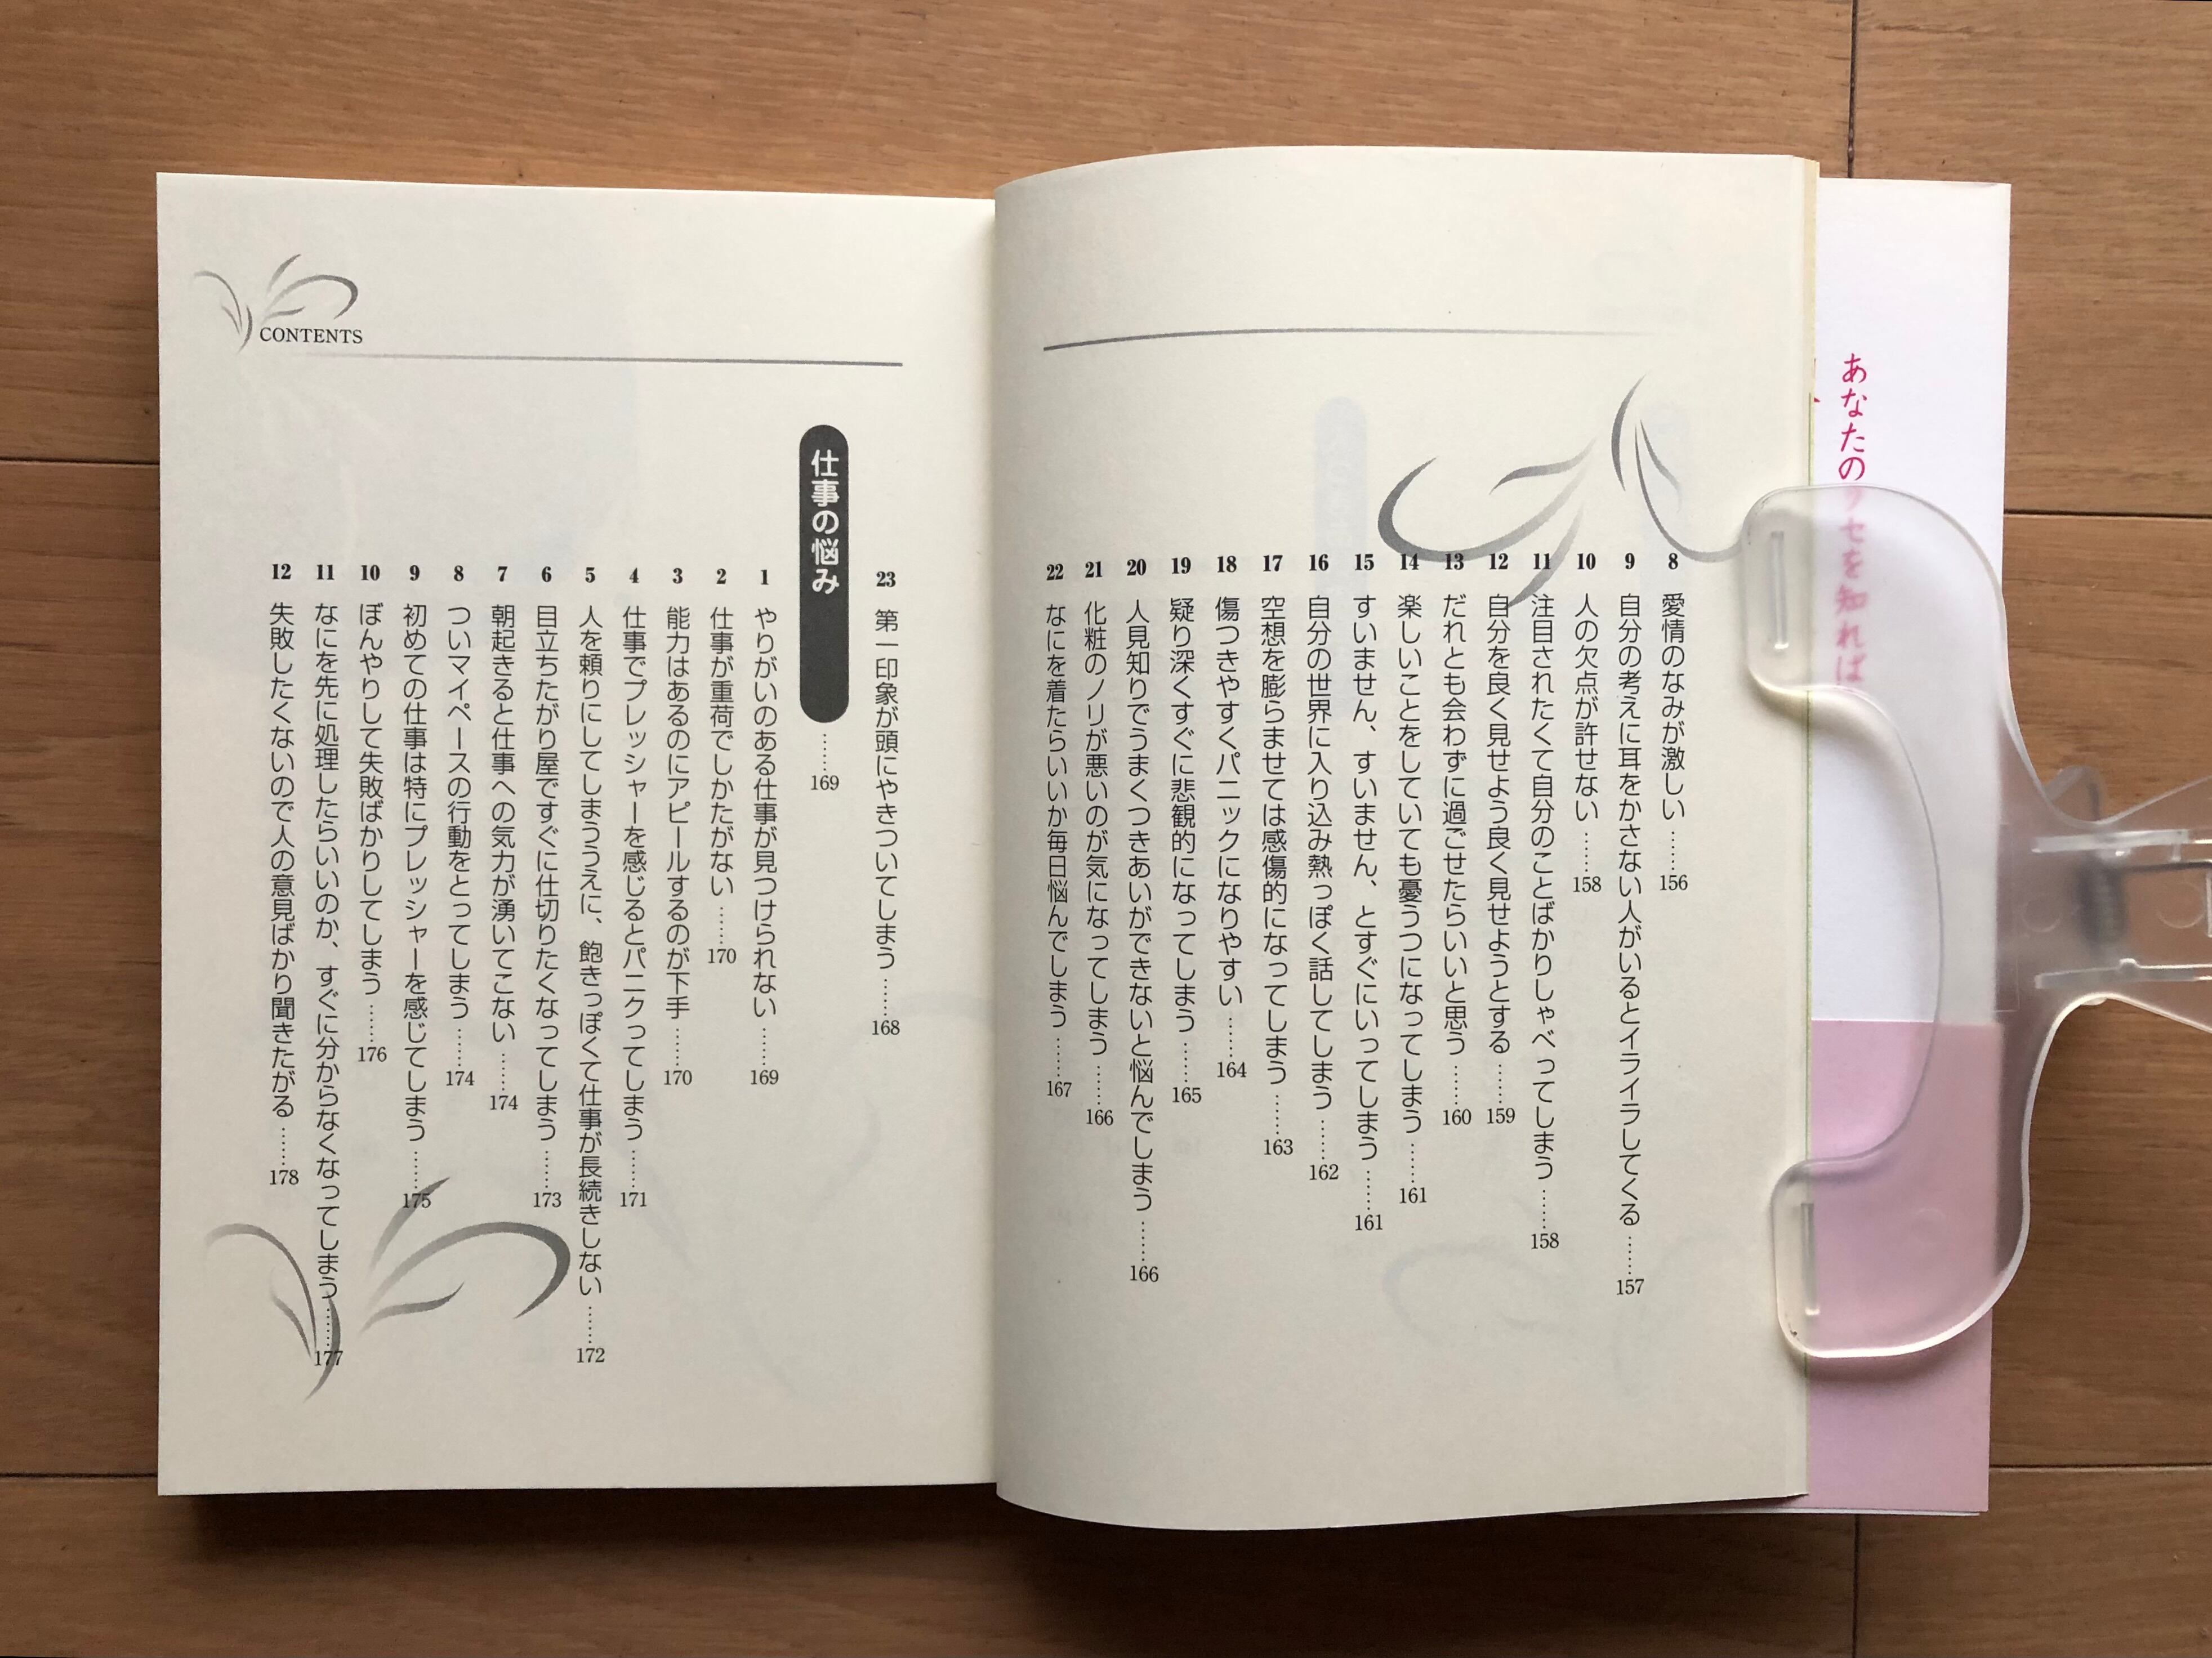 あなたのクセを知れば
8 愛情のなみが激しい ……… 156
9 自分の考えに耳をかさない人がいるとイライラしてくる ……… 157
10 人の欠点が許せない ……… 158
11 注目されたくて自分のことばかりしゃべってしまう ……… 158
12 自分を良く見せよう良く見せようとする ……… 159
13 だれとも会わずに過ごせたらいいと思う ……… 160
14 楽しいことをしていても憂うつになってしまう ……… 161
15 すいません、すいません、とすぐにいってしまう ……… 161
16 自分の世界に入り込み熱っぽく話してしまう ……… 162
17 空想を膨らませては感傷的になってしまう ……… 163
18 傷つきやすくパニックになりやすい ……… 164
19 疑り深くすぐに悲観的になってしまう ……… 165
20 人見知りでうまくつきあいができないと悩んでしまう ……… 166
21 化粧のノリが悪いのが気になってしまう ……… 166
22 なにを着たらいいか毎日悩んでしまう ……… 167
CONTENTS
23 第一印象が頭にやきついてしまう ……… 168
仕事の悩み ……… 169
1 やりがいのある仕事が見つけられない ……… 169
2 仕事が重荷でしかたがない ……… 170
3 能力はあるのにアピールするのが下手 ……… 170
4 仕事でプレッシャーを感じるとパニクってしまう ……… 171
5 人を頼りにしてしまううえに、飽きっぽくて仕事が長続きしない ……… 172
6 目立ちたがり屋ですぐに仕切りたくなってしまう ……… 173
7 朝起きると仕事への気力が湧いてこない ……… 174
8 ついマイペースの行動をとってしまう ……… 174
9 初めての仕事は特にプレッシャーを感じてしまう ……… 175
10 ぼんやりして失敗ばかりしてしまう ……… 176
11 なにを先に処理したらいいのか、すぐに分からなくなってしまう ……… 177
12 失敗したくないので人の意見ばかり聞きたがる ……… 178